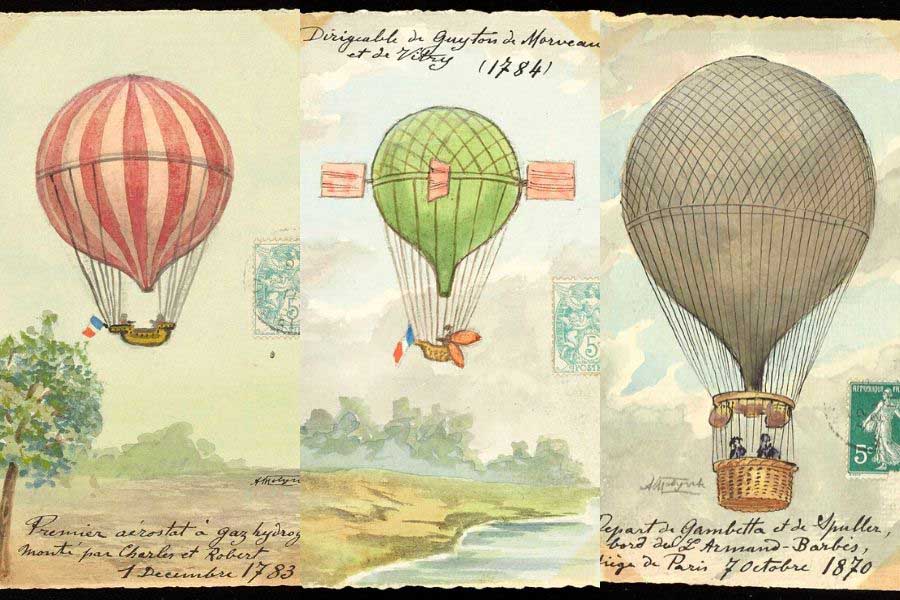 Premier aérostat à gaz hydrog
monté par Charles et Robert
1 Decembre 1783
Dirigeable de Guyton de Morveau
et de Vitry (1784)
5
REPUBLIQUE FR
5c
Depart de Gambetta et de Spuller,
bord du L'Armand-Barbès,
iège de Paris 7 Octobre 1870